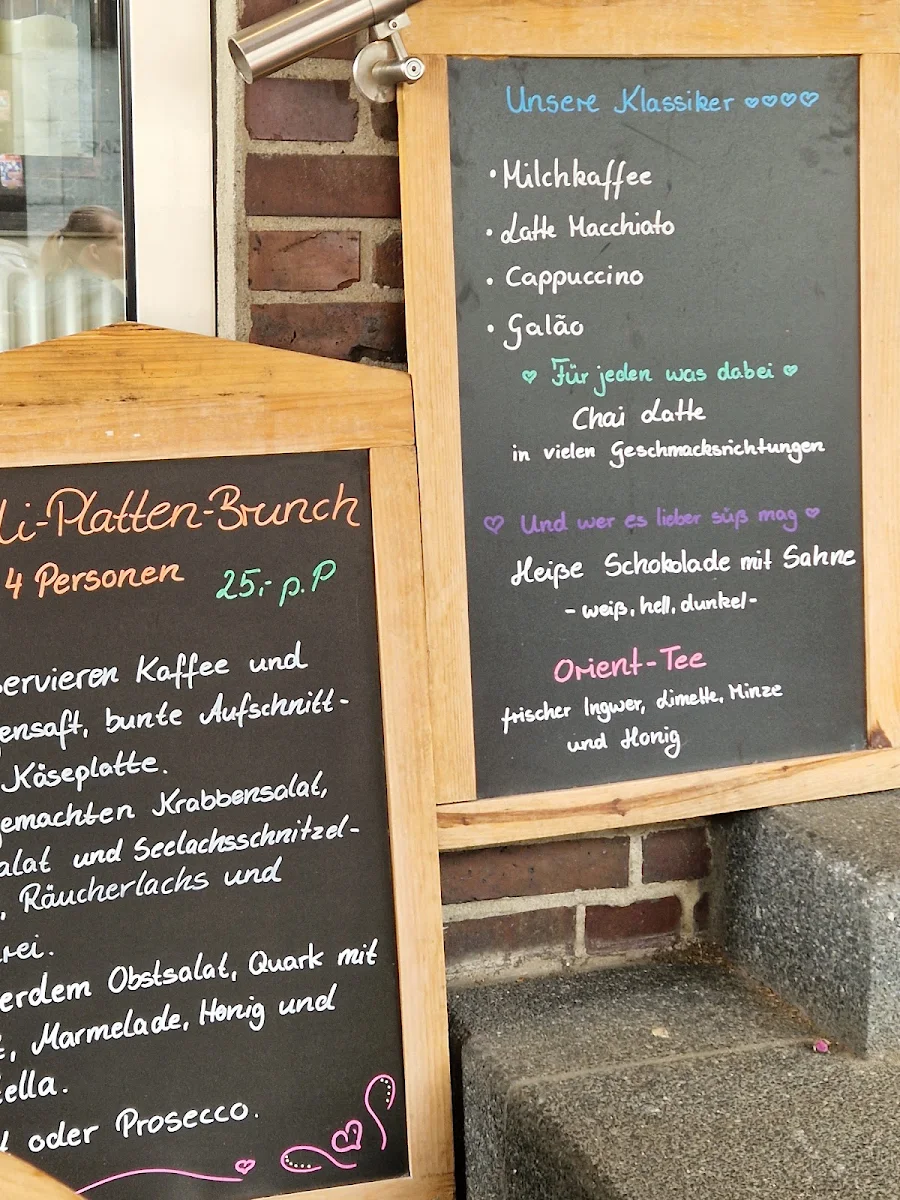 Unsere Klassiker
• Milchkaffee
• Latte Macchiato
• Cappuccino
• Galão
Für jeden was dabei
Chai Latte
in vielen Geschmacksrichtungen
Und wer es lieber süß mag
Heiße Schokolade mit Sahne
- weiß, hell, dunkel -
Orient-Tee
frischer Ingwer, Limette, Minze
und Honig
li-Platten-Brunch
4 Personen 25,- p.P
servieren Kaffee und
gensaft, bunte Aufschnitt-
Käseplatte.
gemachten Krabbensalat,
alat und Seelachsschnitzel-
, Räucherlachs und
rei.
erdem Obstsalat, Quark mit
, Marmelade, Honig und
ella.
oder Prosecco.